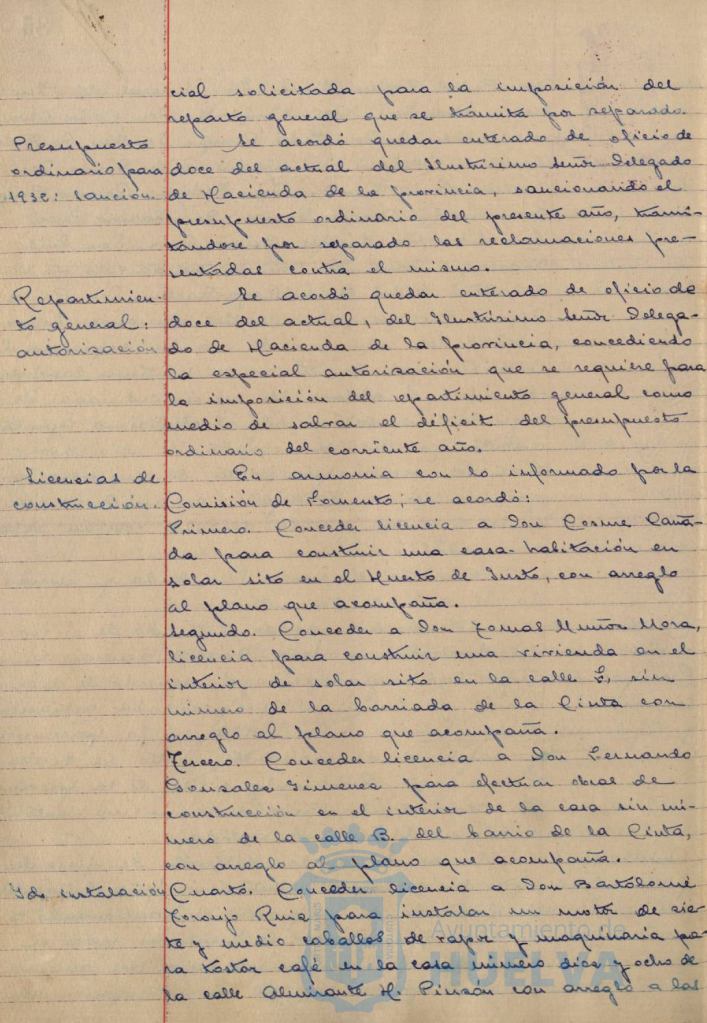 cial solicitada para la imposición del
reparto general que se tramita por separado.
Presupuesto
ordinario para
1932: Sanción.
Se acordó quedar enterado de oficio de
doce del actual del Ilustrísimo Señor Delegado
de Hacienda de la provincia, sancionando el
presupuesto ordinario del presente año, trami-
tándose por separado las reclamaciones pre-
sentadas contra el mismo.
Repartimien-
to general:
autorización
Se acordó quedar enterado de oficio de
doce del actual, del Ilustrísimo Señor Delega-
do de Hacienda de la provincia, concediendo
la especial autorización que se requiere para
la imposición del repartimiento general como
medio de salvar el déficit del presupuesto
ordinario del corriente año.
Licencias de
construcción.
En armonia con lo informado por la
Comisión de Fomento; se acordó:
Primero. Conceder licencia a Don Cosme Caña-
da para construir una casa-habitación en
solar sito en el Huerto de Justo, con arreglo
al plano que acompaña.
Segundo. Conceder a Don Tomas Muñoz Mora,
licencia para construir una vivienda en el
interior de solar sito en la calle F, sin
número de la barriada de la Cinta con
arreglo al plano que acompaña.
Tercero. Conceder licencia a Don Fernando
Gonzalez Gimenez para efectuar obras de
construcción en el interior de la casa sin nú-
mero de la calle B. del barrio de la Cinta,
con arreglo al plano que acompaña.
Id. instalación
Cuarto. Conceder licencia a Don Bartolomé
Toronjo Ruiz para instalar un motor de sie-
te y medio caballos de vapor y maquinaria pa-
ra tostar café en la casa número diez y ocho de
la calle Almirante H. Pinzón con arreglo a las
Ayuntamiento de
HUELVA